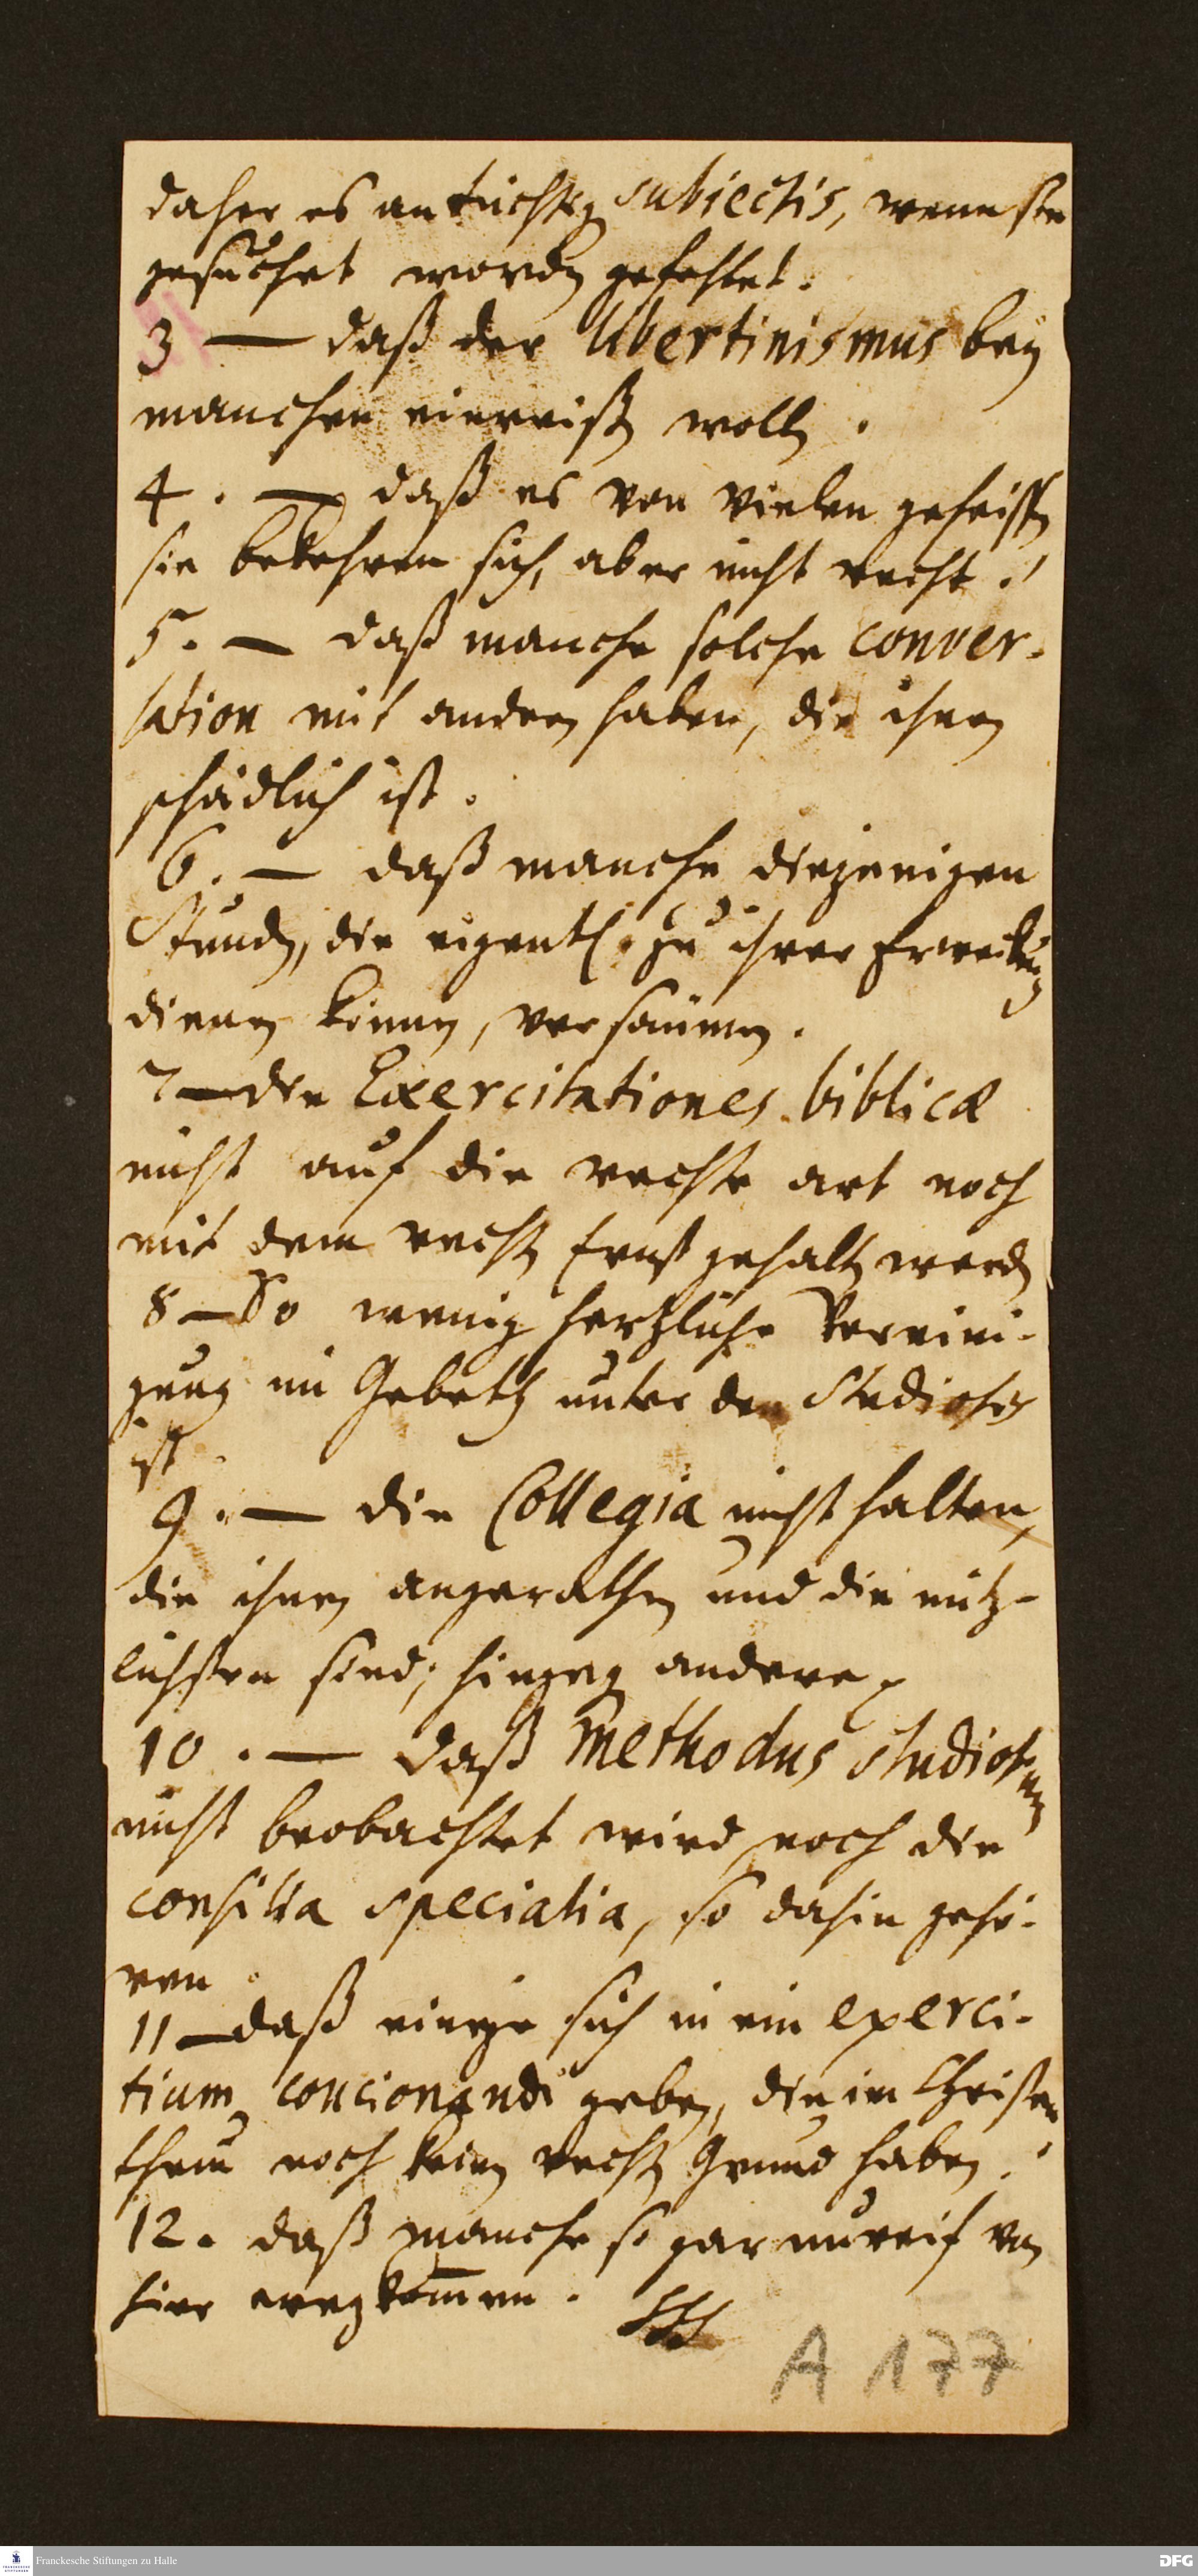 daher es an tüchtig subiectis, wenn sie
gesuchet worden gefehlet.
3 — daß der libertinismus bey
manchen einreißen wollen.
4. — daß es von vielen geheißen
sie bekehren sich, aber nicht recht.
5. — daß manche solche conver-
sation mit andern haben, die ihnen
schädlich ist.
6. — daß manche diejenigen
Stunden, die eigentl. zu ihrer Erweckung
dienen können, versäumen.
7 — die Exercitationes biblicæ
nicht auf die rechte art noch
mit dem rechten Ernst gehalten werden
8 — So wenig hertzliche Vereini-
gung im Gebeth unter den Studiosis
ist.
9. — die Collegia nicht halten,
die ihnen angerathen und die nütz-
lichsten sind, hingegen andere
10. — daß Methodus studiorum
nicht beobachtet wird, noch die
consilia specialia, so dahin gehö-
ren.
11 — daß einige sich in ein exerci-
tium concionandi geben, die im Christen
thum noch keinen rechten Grund haben.
12. daß manche so gar unreif von
hier wegkom̄en.
A 177
Franckesche Stiftungen zu Halle
DFG